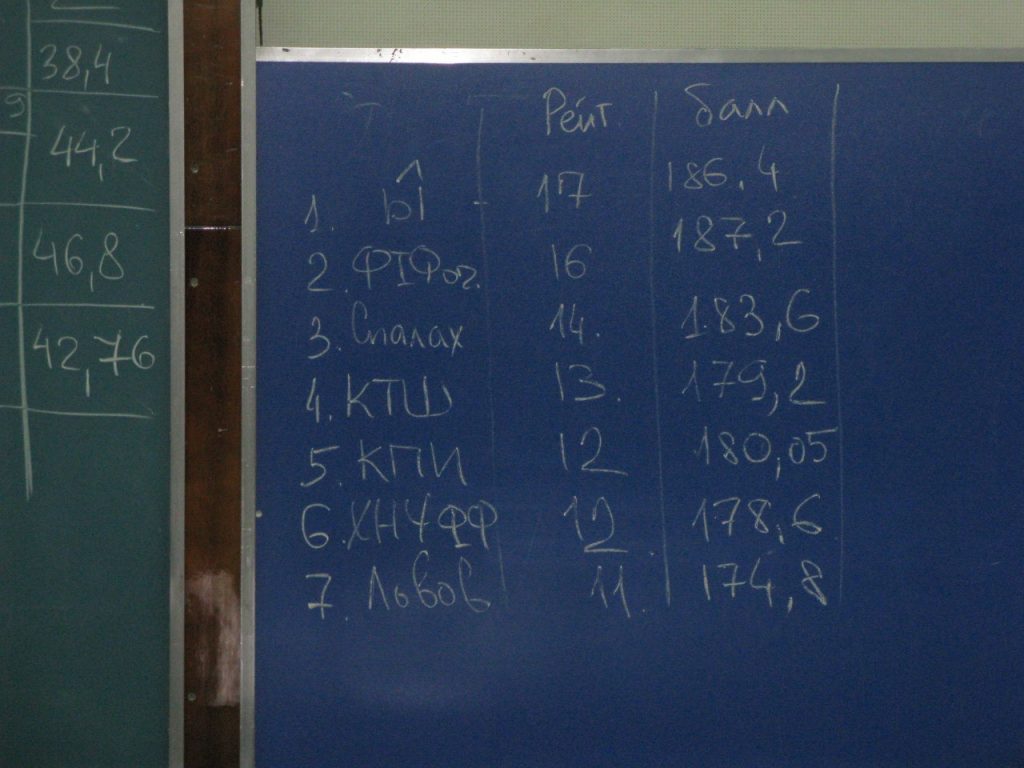 38,4
9
44,2
46,8
42,76
Рейт. балл
1. Ы̂ - 17 186.4
2. ФІФоч. 16 187,2
3. Спалах 14. 183,6
4. КТШ 13. 179,2
5. КПИ 12 180,05
6. ХНУФФ 12. 178,6
7. Львов 11. 174,8